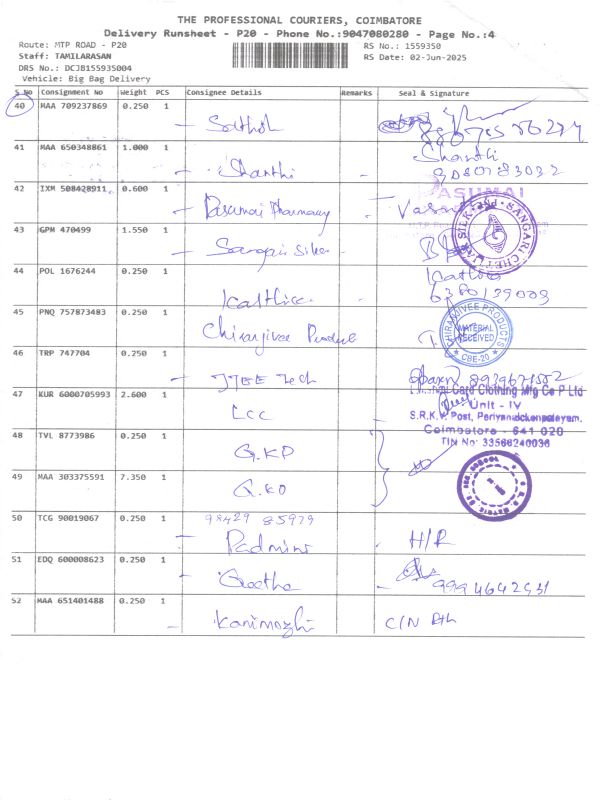 THE PROFESSIONAL COURIERS, COIMBATORE
Delivery Runsheet - P20 - Phone No.:9047080280 - Page No.:4
Route: MTP ROAD - P20
RS No.: 1559350
Staff: TAMILARASAN
RS Date: 02-Jun-2025
DRS No.: DCJB155935004
Vehicle: Big Bag Delivery
S No Consignment No Weight PCS Consignee Details Remarks Seal & Signature
40 MAA 709237869 0.250 1
41 MAA 650348861 1.000 1 Shanthi Shanthi
9080783032
42 IXM 508428911 0.600 1 Pasumai Pharmacy
43 GPM 470499 1.550 1
SANGARI CHETTIAR SILK
44 POL 1676244 0.250 1
6380139009
45 PNQ 757873483 0.250 1 Chiranjivee Product
CHIRANJIVEE PRODUCTS
MATERIAL RECEIVED
CBE-20
46 TRP 747704 0.250 1 Tech
47 KUR 6000705993 2.600 1 LCC
Card Clothing Mfg Co P Ltd
Unit - IV
S.R.K.V. Post, Periyanaickenpalayam.
Coimbatore - 641 020
TIN No: 33566240036
48 TVL 8773986 0.250 1 G.KD
49 MAA 303375591 7.350 1 G.KD
50 TCG 90019067 0.250 1 98429 85979
Padmini H/R
51 EDQ 600008623 0.250 1 Geetha
9994642531
52 MAA 651401488 0.250 1 Kanimozhi C/N